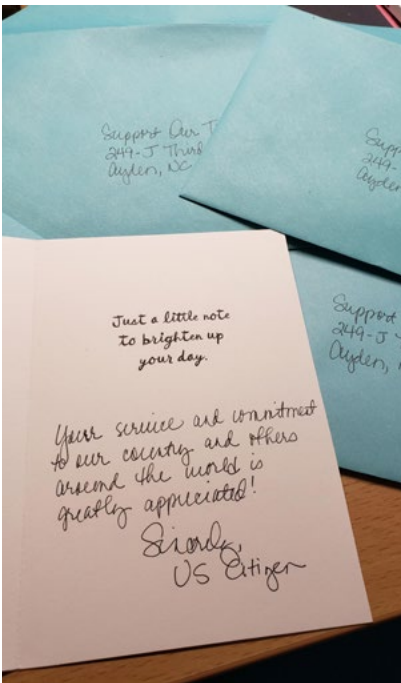 Support Our T
249-J Third
Ayden, NC
Supp
249-
Ayden
Support
249-J T
Ayden,
Just a little note
to brighten up
your day.
Your service and commitment
to our country and others
around the world is
greatly appreciated!
Sincerely,
US Citizen